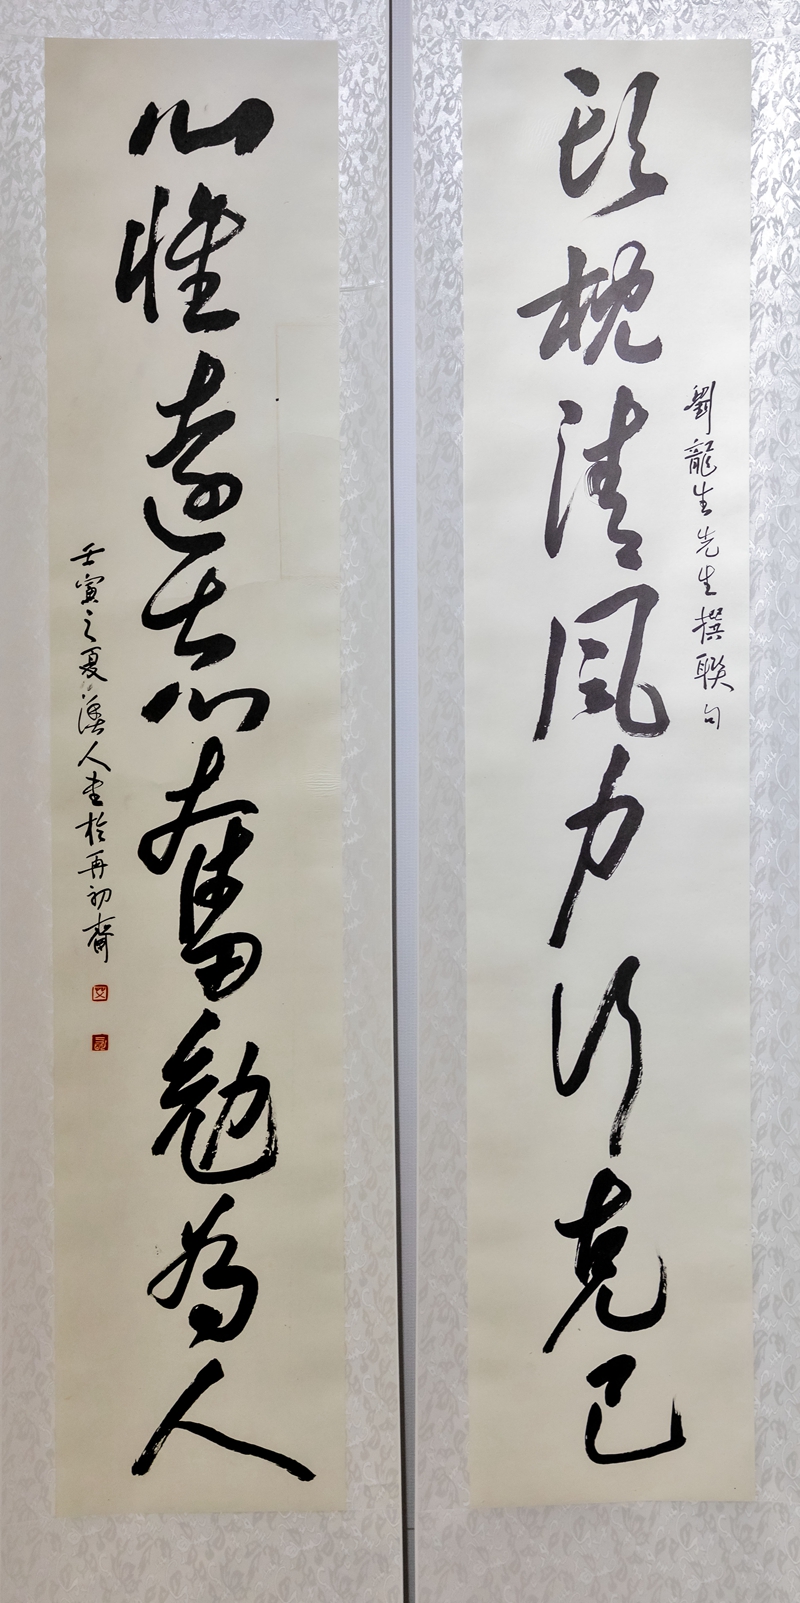 頭枕清風力行克己
劉龍生先生撰聯句
心惟遠志奮勉為人
壬寅之夏人書於再初齋